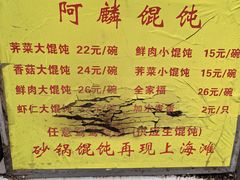 阿麟馄饨
荠菜大馄饨 22元/碗 鲜肉小馄饨 15元/碗
香菇大馄饨 24元/碗 荠菜小馄饨 15元/碗
鲜肉大馄饨 26元/碗 全家福 26元/碗
虾仁大馄饨 2元/只
任意 (供应生馄饨)
砂锅馄饨再现上海滩